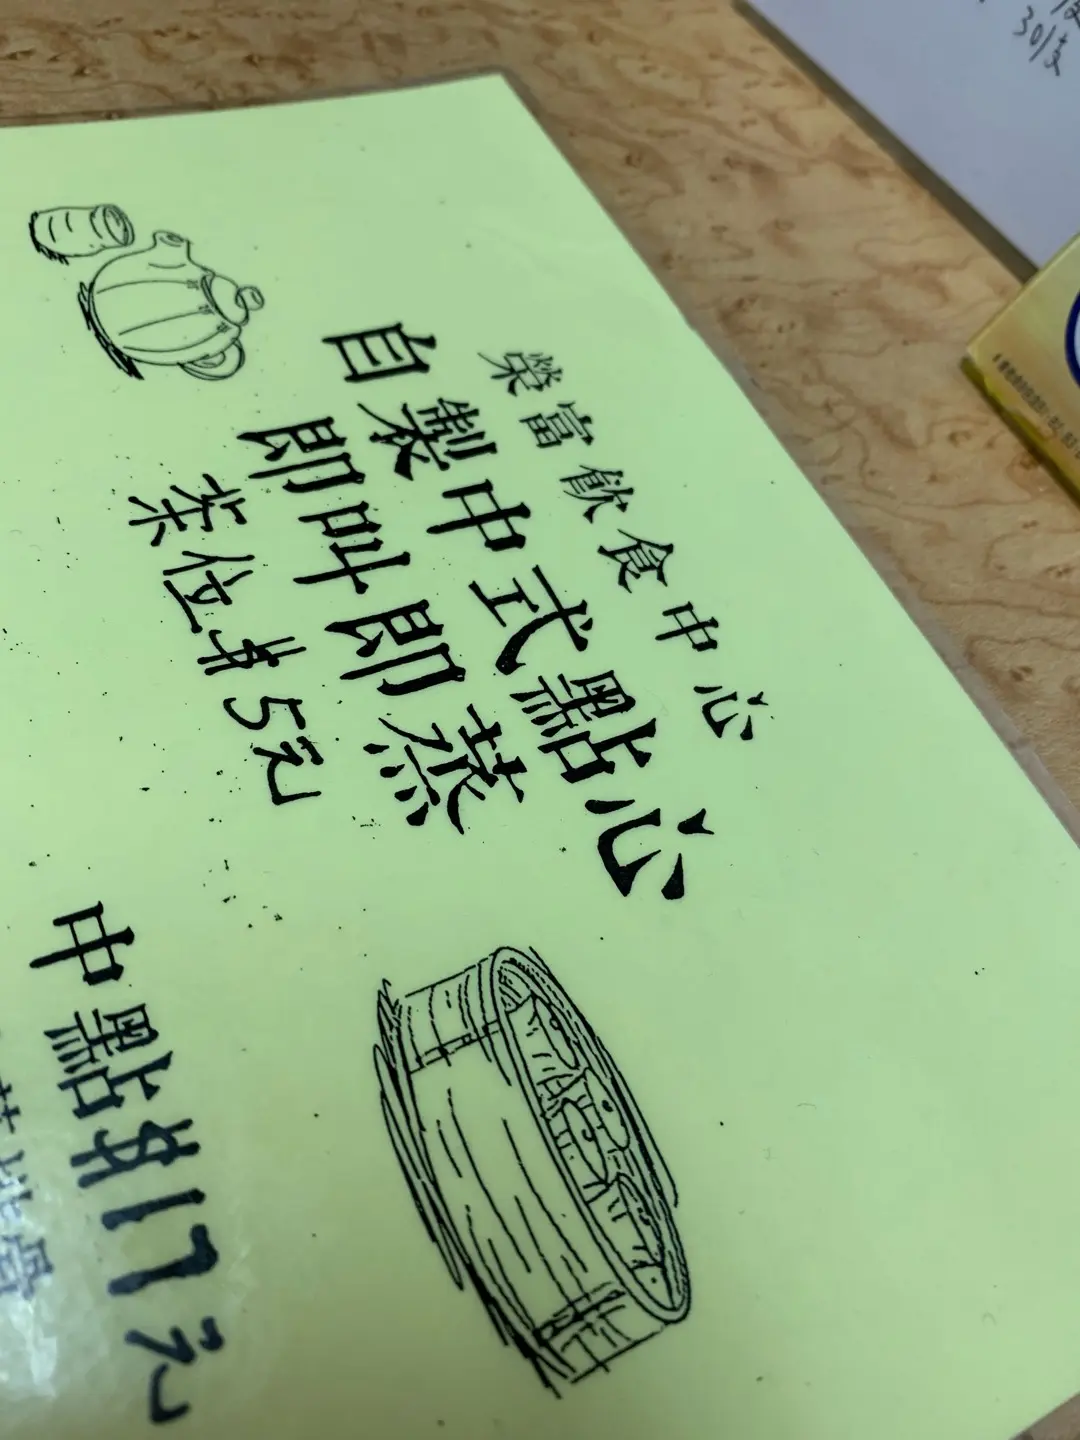 榮富飲食中心
自製中式點心
即叫即蒸
茶位$5元
中點$17元
30/支